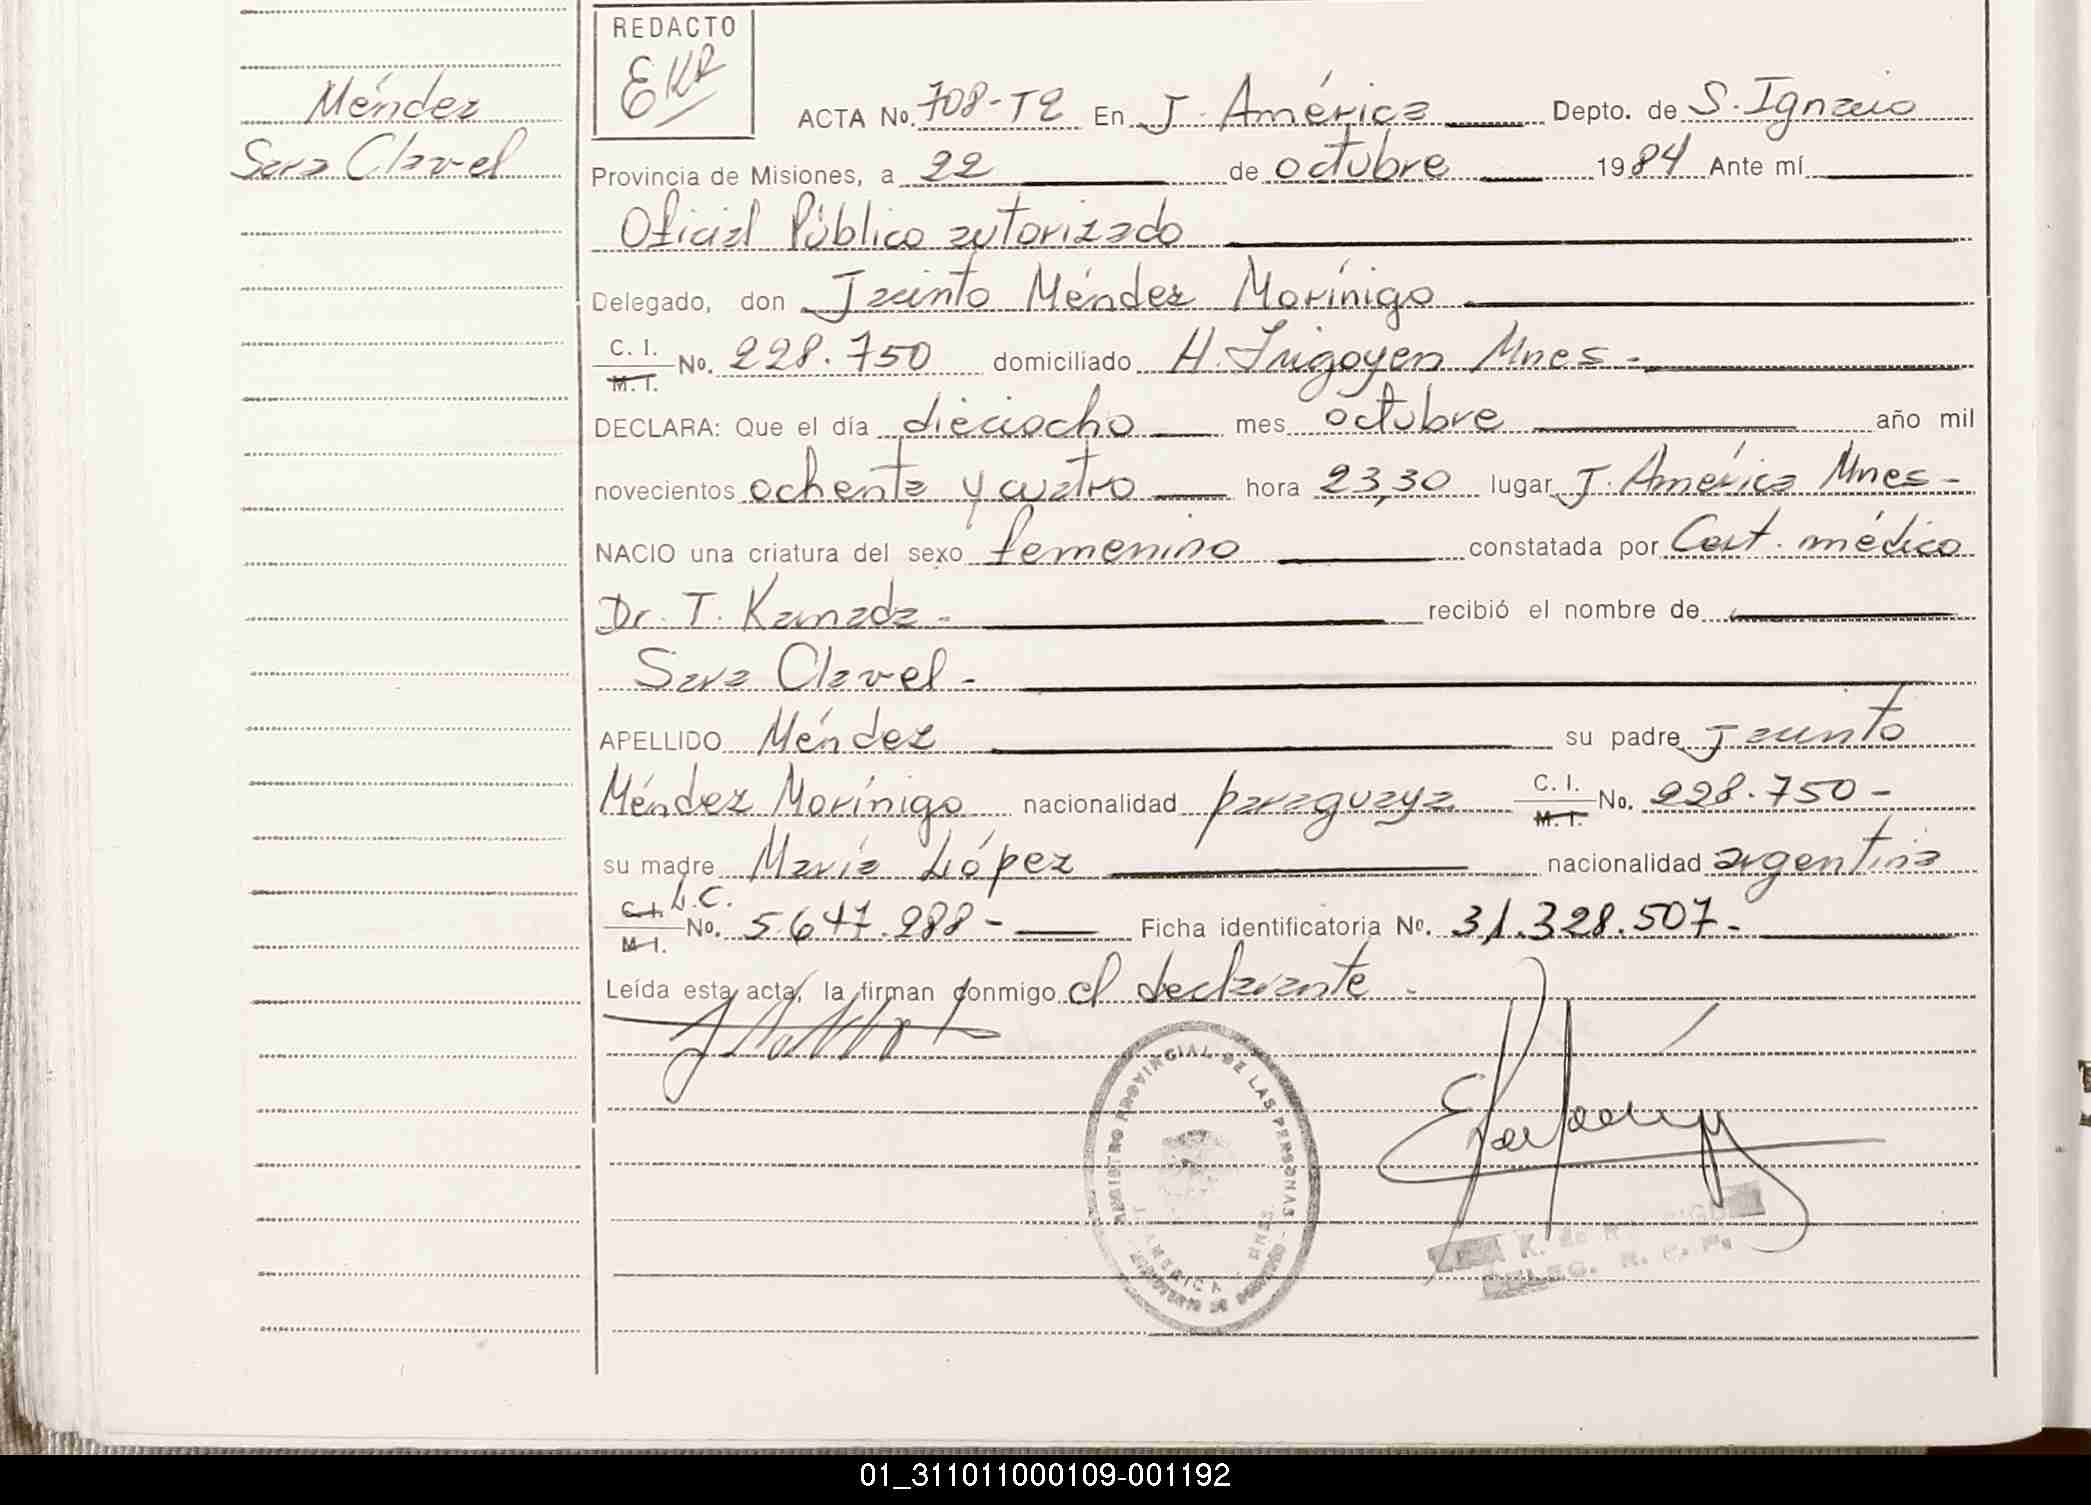 Méndez
Sara Clavel
REDACTO
EKR
ACTA No. 708-T2 En J. América Depto. de S. Ignacio
Provincia de Misiones, a 22 de octubre 1984 Ante mí
Oficial Público autorizado
Delegado, don Jacinto Méndez Morínigo
C. I.
M. I. No. 228.750 domiciliado H. Irigoyen Mnes -
DECLARA: Que el día dieciocho mes octubre año mil
novecientos ochenta y cuatro hora 23,30 lugar J. América Mnes -
NACIO una criatura del sexo femenino constatada por Cert. médico
Dr. T. Kamada - recibió el nombre de
Sara Clavel -
APELLIDO Méndez su padre Jacinto
Méndez Morínigo nacionalidad paraguaya C. I. M. I. No. 228.750 -
su madre María López nacionalidad argentina
C. I. L.C.
M. I. No. 5.647.288 - Ficha identificatoria No. 31.328.507 -
Leída esta acta, la firman conmigo el declarante -
REGISTRO PROVINCIAL DE LAS PERSONAS
AMERICA - MNES.
K. de
DELEG. R. P. P.
01_311011000109-001192